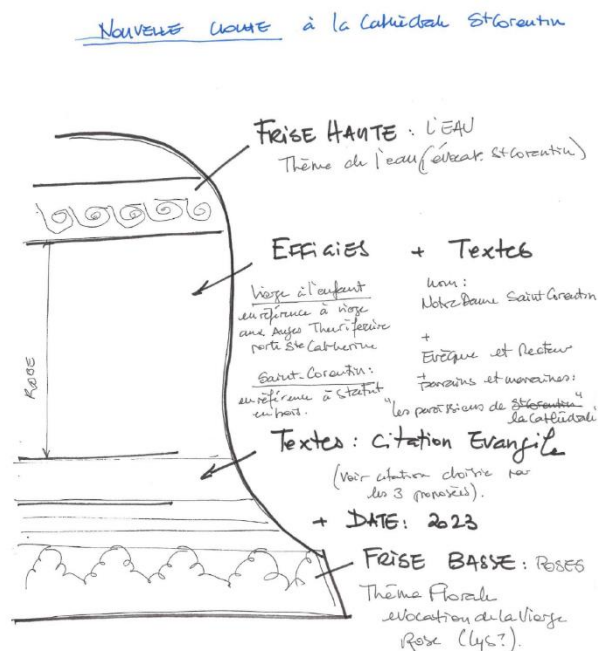 NOUVELLE CLOCHE à la Cathédrale St Corentin
FRISE HAUTE : L'EAU
Thème de l'eau (évocat. St Corentin)
EFFIGIES + Textes
Vierge à l'enfant
en référence à vierge
aux Anges Thuriféraire
porte Ste Catherine
Saint-Corentin:
en référence à Statut
en bois.
nom:
Notre Dame Saint Corentin
+
Evêque et Recteur
+
parrains et marraines:
"les paroissiens de St Corentin"
la Cathédrale
ROBE
Textes : Citation Evangile
(voir citation choisie par
les 3 proposées).
+ DATE: 2023
FRISE BASSE : ROSES
Thème Florale
évocation de la Vierge
Rose (Lys ?).